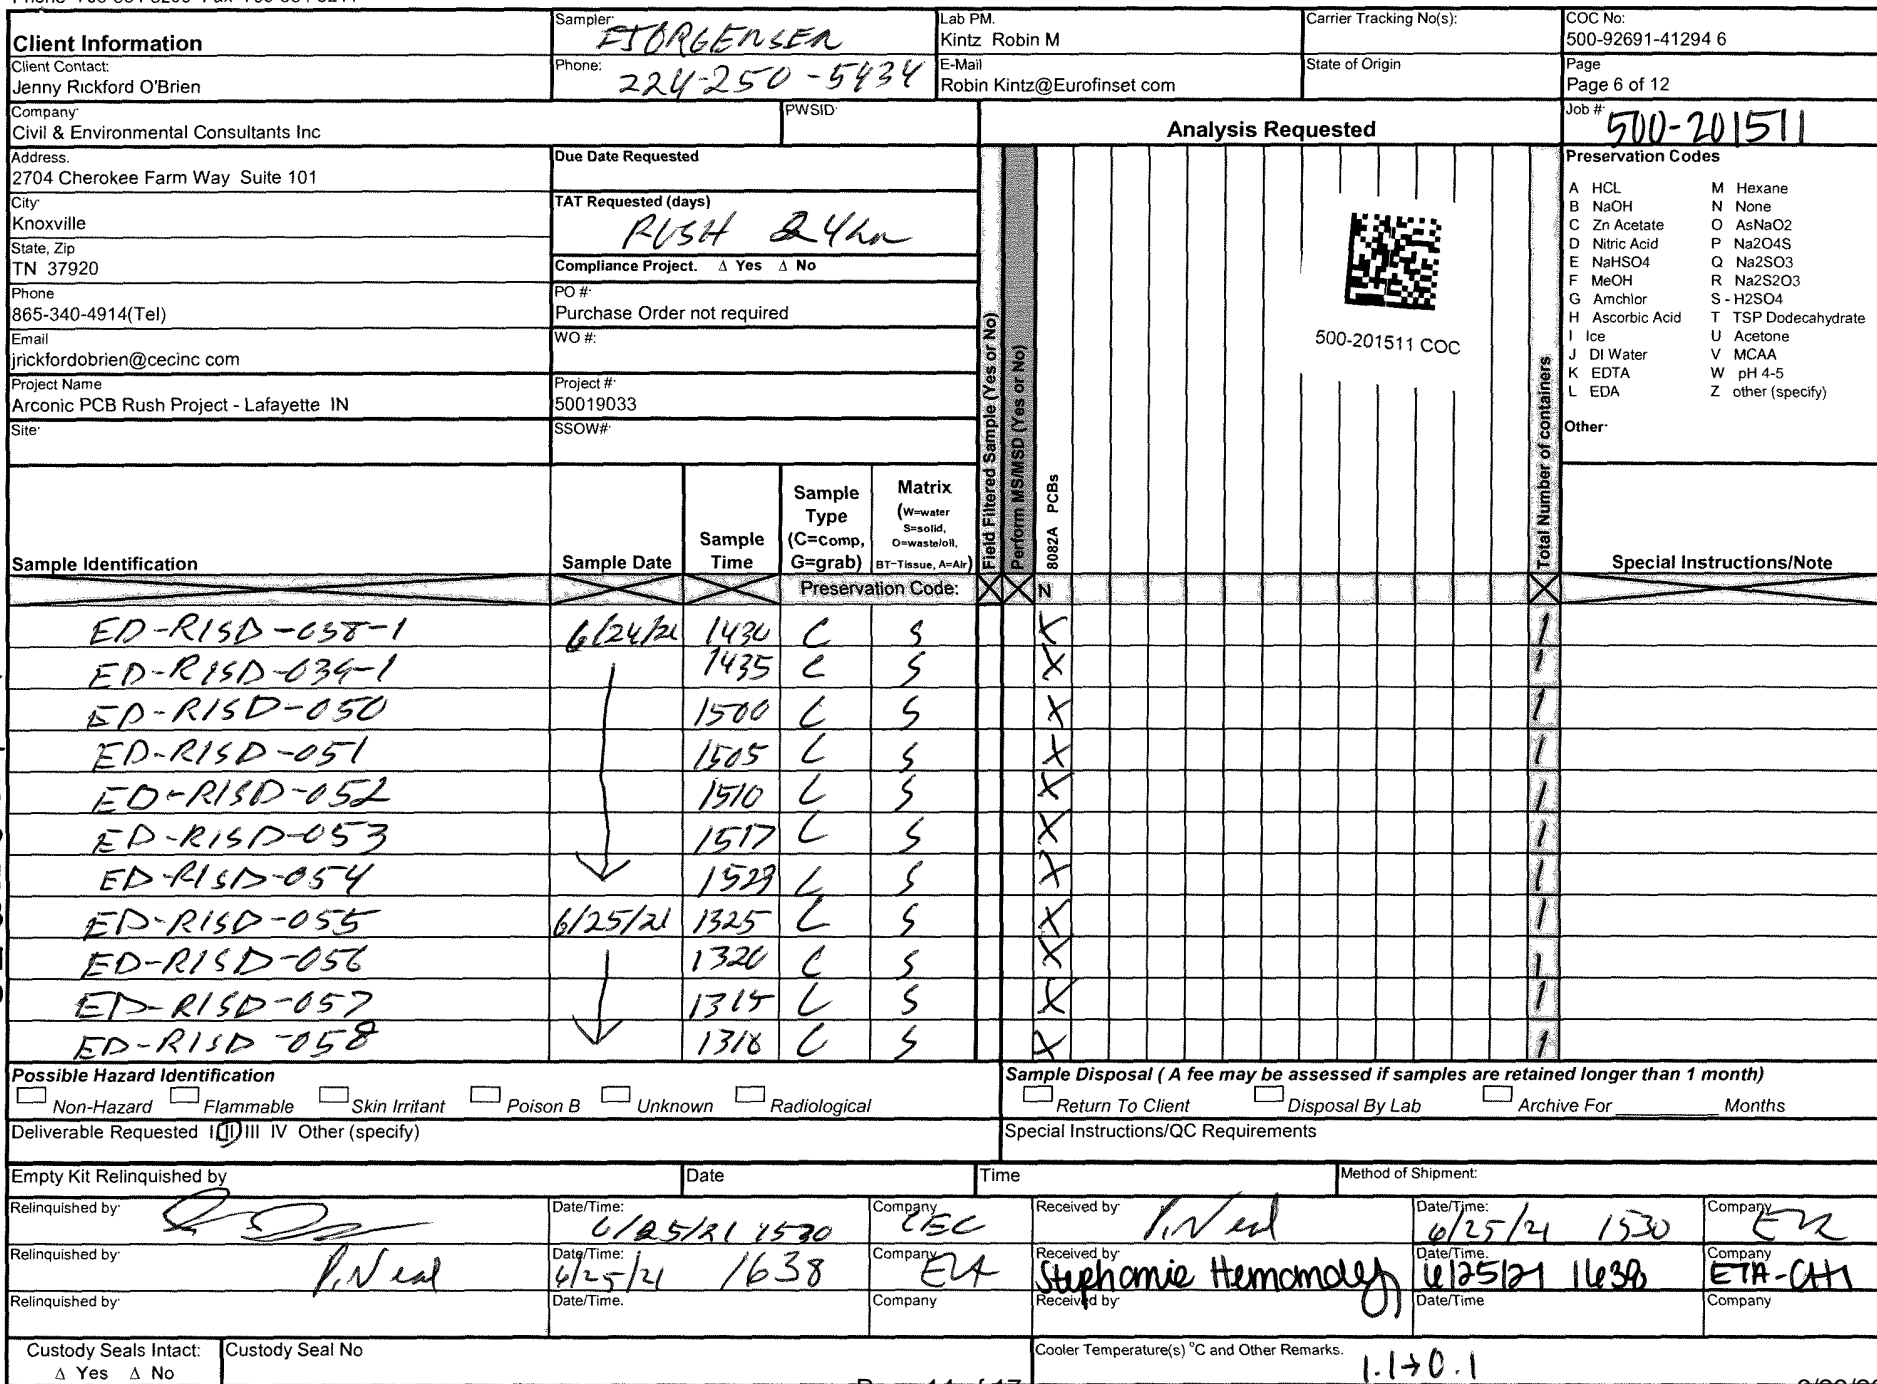 Client Information
Sampler:
EJORGENSEN
Lab PM.
Kintz Robin M
Carrier Tracking No(s):
COC No:
500-92691-41294 6
Client Contact:
Jenny Rickford O'Brien
Phone:
224-250-5434
E-Mail
Robin Kintz@Eurofinset com
State of Origin
Page
Page 6 of 12
Company
Civil & Environmental Consultants Inc
PWSID
Analysis Requested
Job #
500-201511
Address.
2704 Cherokee Farm Way Suite 101
Due Date Requested
City
Knoxville
TAT Requested (days)
RUSH 24hr
State, Zip
TN 37920
Compliance Project. Δ Yes Δ No
Phone
865-340-4914(Tel)
PO #
Purchase Order not required
Email
jrickfordobrien@cecinc com
WO #:
Project Name
Arconic PCB Rush Project - Lafayette IN
Project #
50019033
Site
SSOW#
Field Filtered Sample (Yes or No)
Perform MS/MSD (Yes or No)
8082A PCBs
500-201511 COC
Total Number of containers
Preservation Codes
A HCL M Hexane
B NaOH N None
C Zn Acetate O AsNaO2
D Nitric Acid P Na2O4S
E NaHSO4 Q Na2SO3
F MeOH R Na2S2O3
G Amchlor S - H2SO4
H Ascorbic Acid T TSP Dodecahydrate
I Ice U Acetone
J DI Water V MCAA
K EDTA W pH 4-5
L EDA Z other (specify)
Other
Sample Identification
Sample Date
Sample Time
Sample Type (C=comp, G=grab)
Matrix (W=water S=solid, O=waste/oil, BT-Tissue, A=Air)
Special Instructions/Note
Preservation Code: N
ED-RISD-038-1 6/24/21 1430 C S X 1
ED-RISD-039-1 1435 C S X 1
ED-RISD-050 1500 C S X 1
ED-RISD-051 1505 C S X 1
ED-RISD-052 1510 C S X 1
ED-RISD-053 1517 C S X 1
ED-RISD-054 1523 C S X 1
ED-RISD-055 6/25/21 1325 C S X 1
ED-RISD-056 1320 C S X 1
ED-RISD-057 1315 C S X 1
ED-RISD-058 1318 C S X 1
Possible Hazard Identification
Non-Hazard Flammable Skin Irritant Poison B Unknown Radiological
Sample Disposal ( A fee may be assessed if samples are retained longer than 1 month)
Return To Client Disposal By Lab Archive For Months
Deliverable Requested I II III IV Other (specify)
Special Instructions/QC Requirements
Empty Kit Relinquished by
Date
Time
Method of Shipment:
Relinquished by
Date/Time: 6/25/21 1530
Company CEC
Received by P. Neal
Date/Time: 6/25/21 1530
Company
Relinquished by P. Neal
Date/Time: 6/25/21 1638
Company
Received by Stephanie Hernandez
Date/Time. 6/25/21 1638
Company ETA-CHI
Relinquished by
Date/Time.
Company
Received by
Date/Time
Company
Custody Seals Intact:
Δ Yes Δ No
Custody Seal No
Cooler Temperature(s) °C and Other Remarks.
1.1→0.1